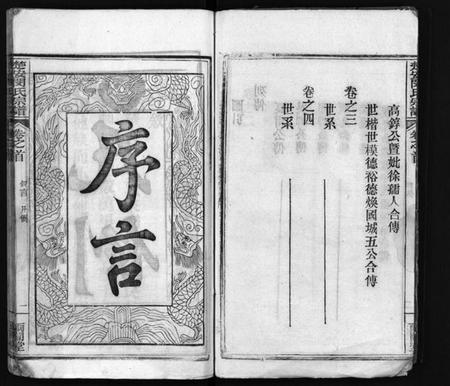 高錞公暨妣徐孺人合傳
世楷世模德裕德煥國城五公合傳
卷之三
世系
卷之四
世系
序言
卷之首